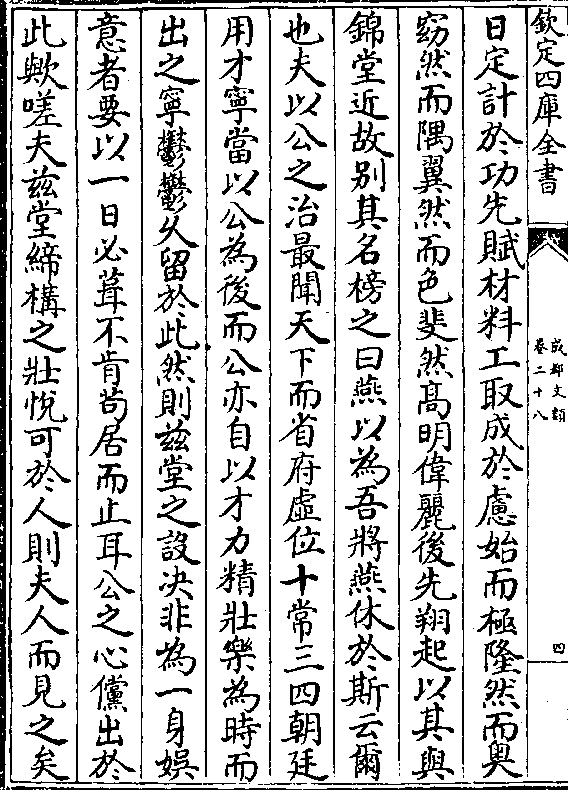 欽定四庫全書
成都文類
卷二十八
四
日定計於功先賦材料工取成於慮始而極隆然而奥
窈然而隅翼然而色斐然髙明偉麗後先翔起以其與
錦堂近故别其名榜之曰燕以為吾將燕休於斯云爾
也夫以公之治最聞天下而省府虛位十常三四朝廷
用才寧當以公為後而公亦自以才力精壯樂為時而
出之寧鬱鬱久留於此然則兹堂之設决非為一身娯
意者要以一日必葺不肯茍居而止耳公之心儻出於
此歟嗟夫兹堂締構之壯恱可於人則夫人而見之矣